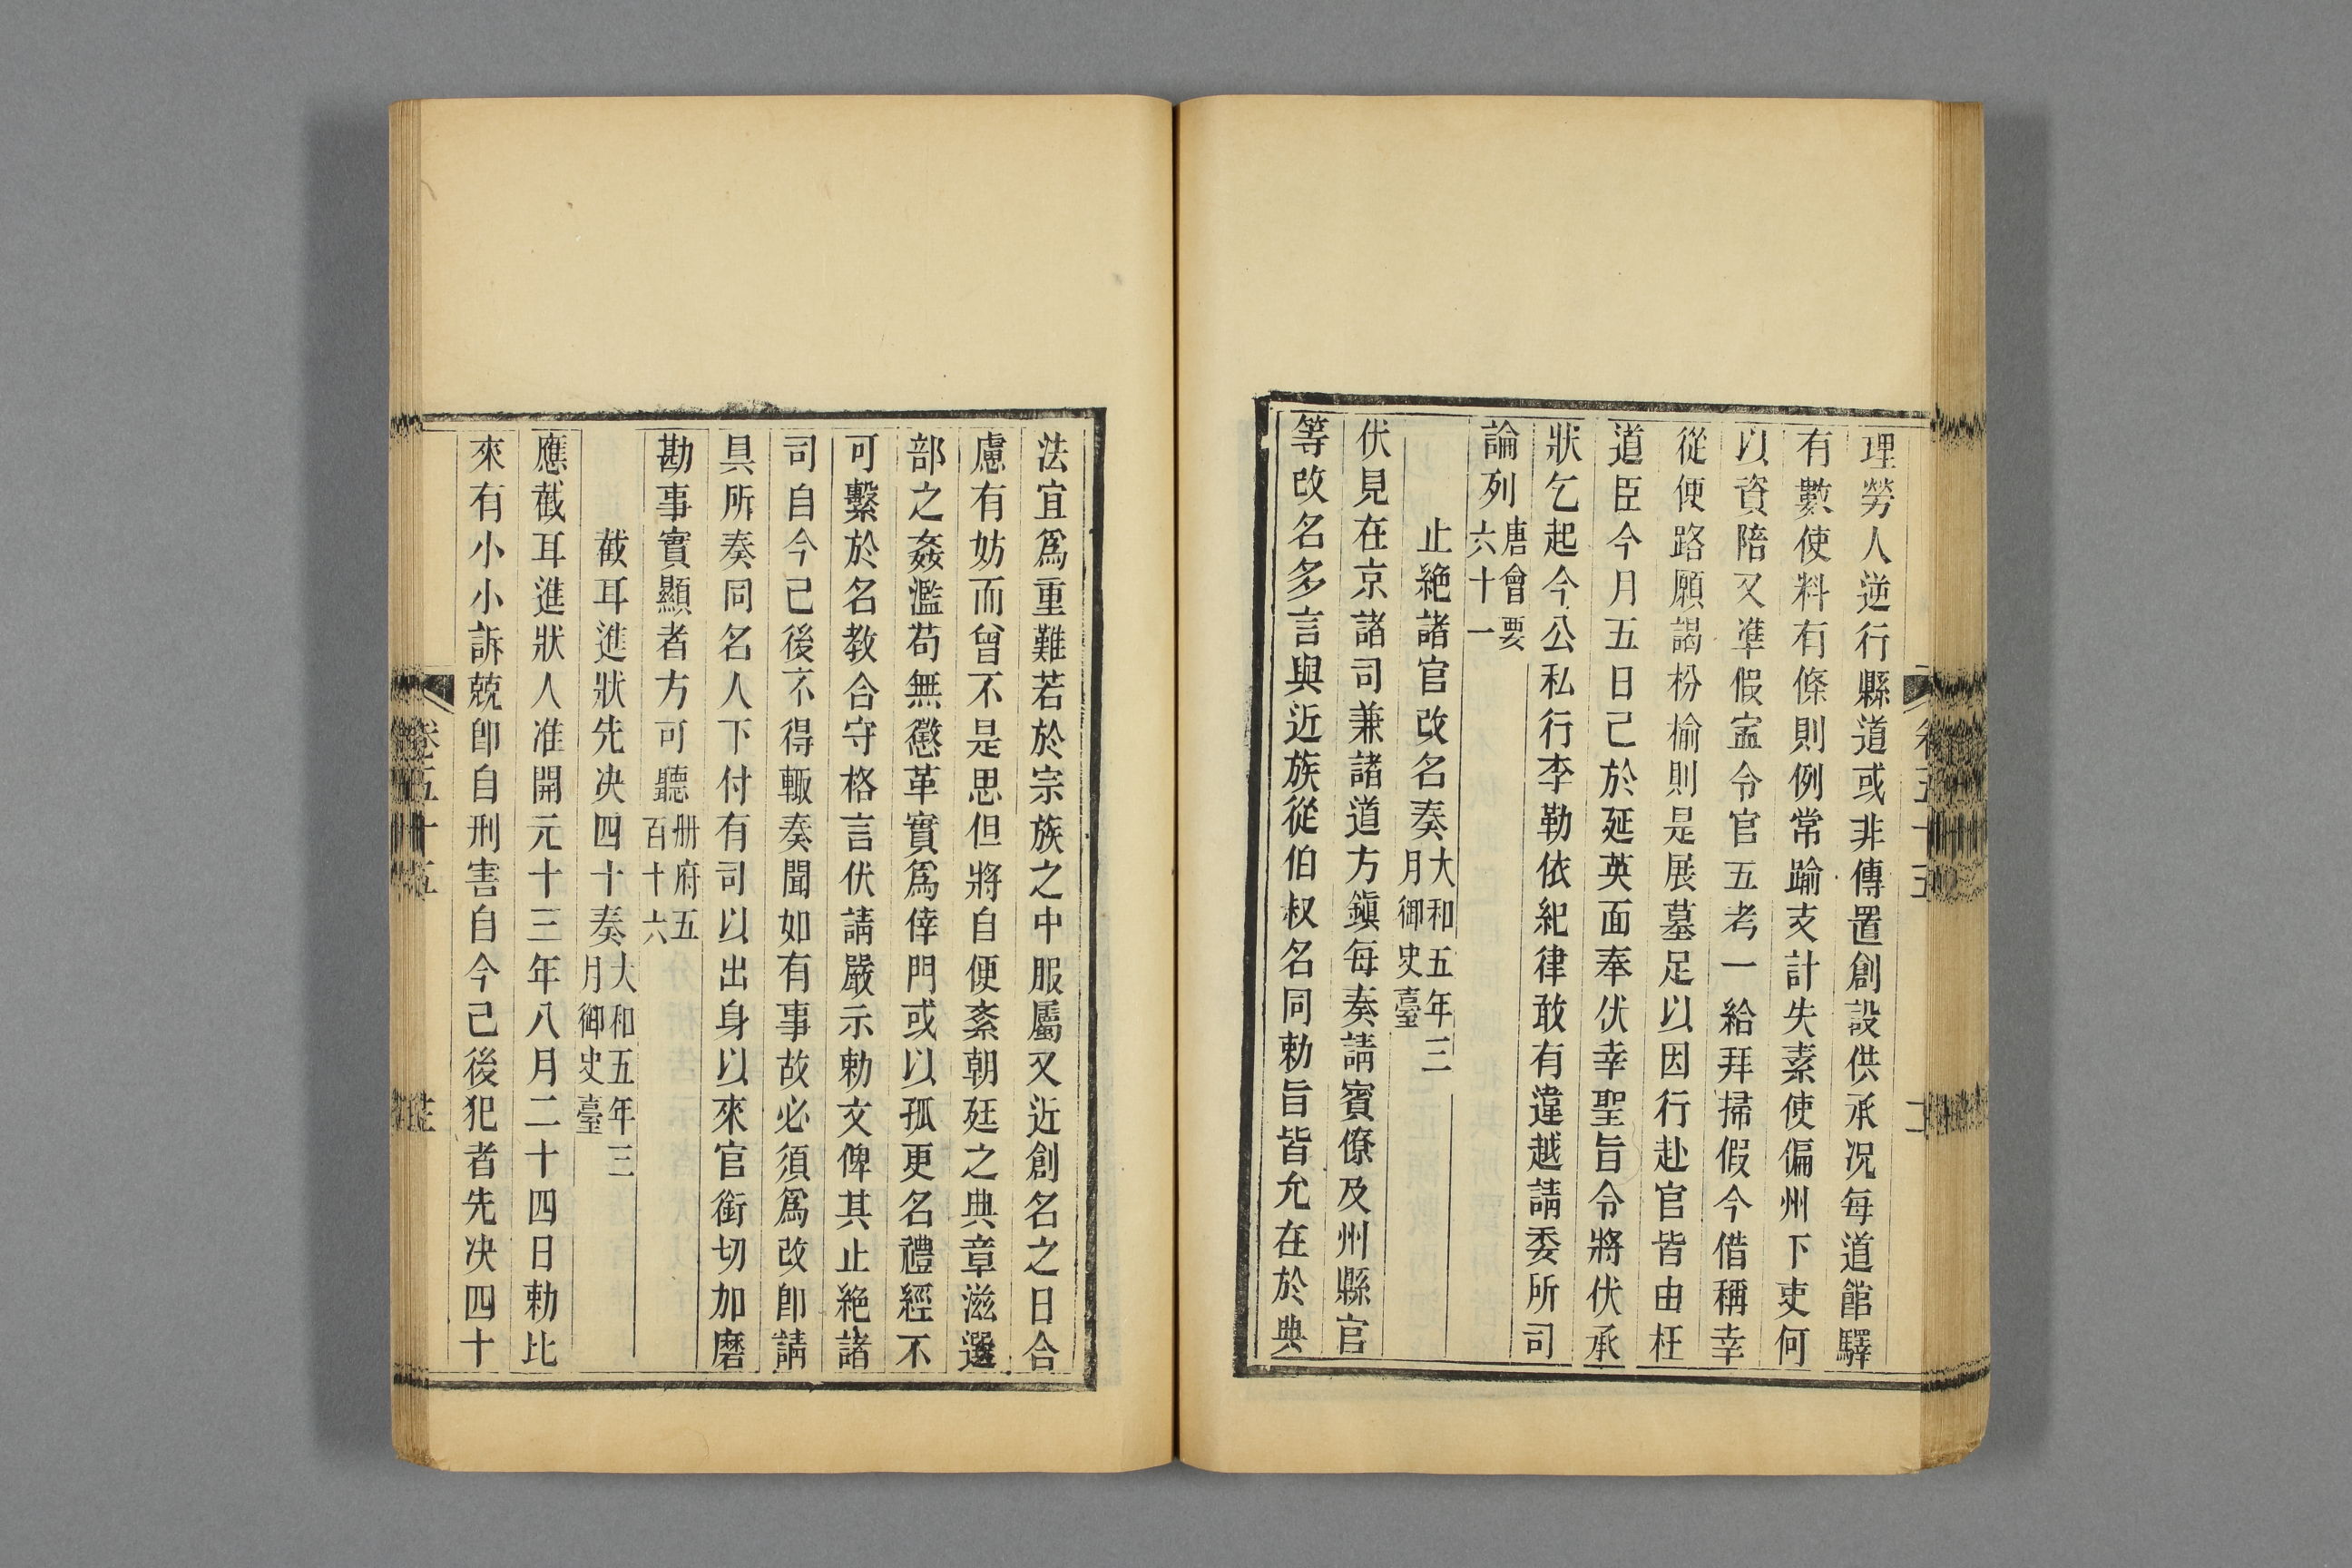 理勞人逆行縣道或非傳置創設供承况每道館驛
有數使料有條則例常踰支計失素使偏州下吏何
以資陪又準假寍令官五考一給拜掃假今借稱幸
從便路願謁枌榆則是展墓足以因行赴官皆由枉
道臣今月五日己於延英面奉伏幸聖旨令將伏承
狀乞起今公私行李勒依紀律敢有違越請委所司
論列唐會要六十一
止絶諸官改名奏大和五年三月御史臺
伏見在京諸司兼諸道方鎭每奏請賓僚及州縣官
等改名多言與近族從伯叔名同勅旨皆允在於典
法宜爲重難若於宗族之中服屬又近創名之日合
慮有妨而曾不是思但將自便紊朝廷之典章滋選
部之姦濫苟無懲革實爲倖門或以孤更名禮經不
可繫於名教合守格言伏請嚴示勅文俾其止絶諸
司自今己後不得輙奏聞如有事故必須爲改卽請
具所奏同名人下付有司以出身以來官銜切加磨
勘事實顯者方可聽册府五百十六
截耳進狀先决四十奏大和五年三月御史臺
應截耳進狀人准開元十三年八月二十四日勅比
來有小小訴兢卽自刑害自今己後犯者先决四十
卷五十五